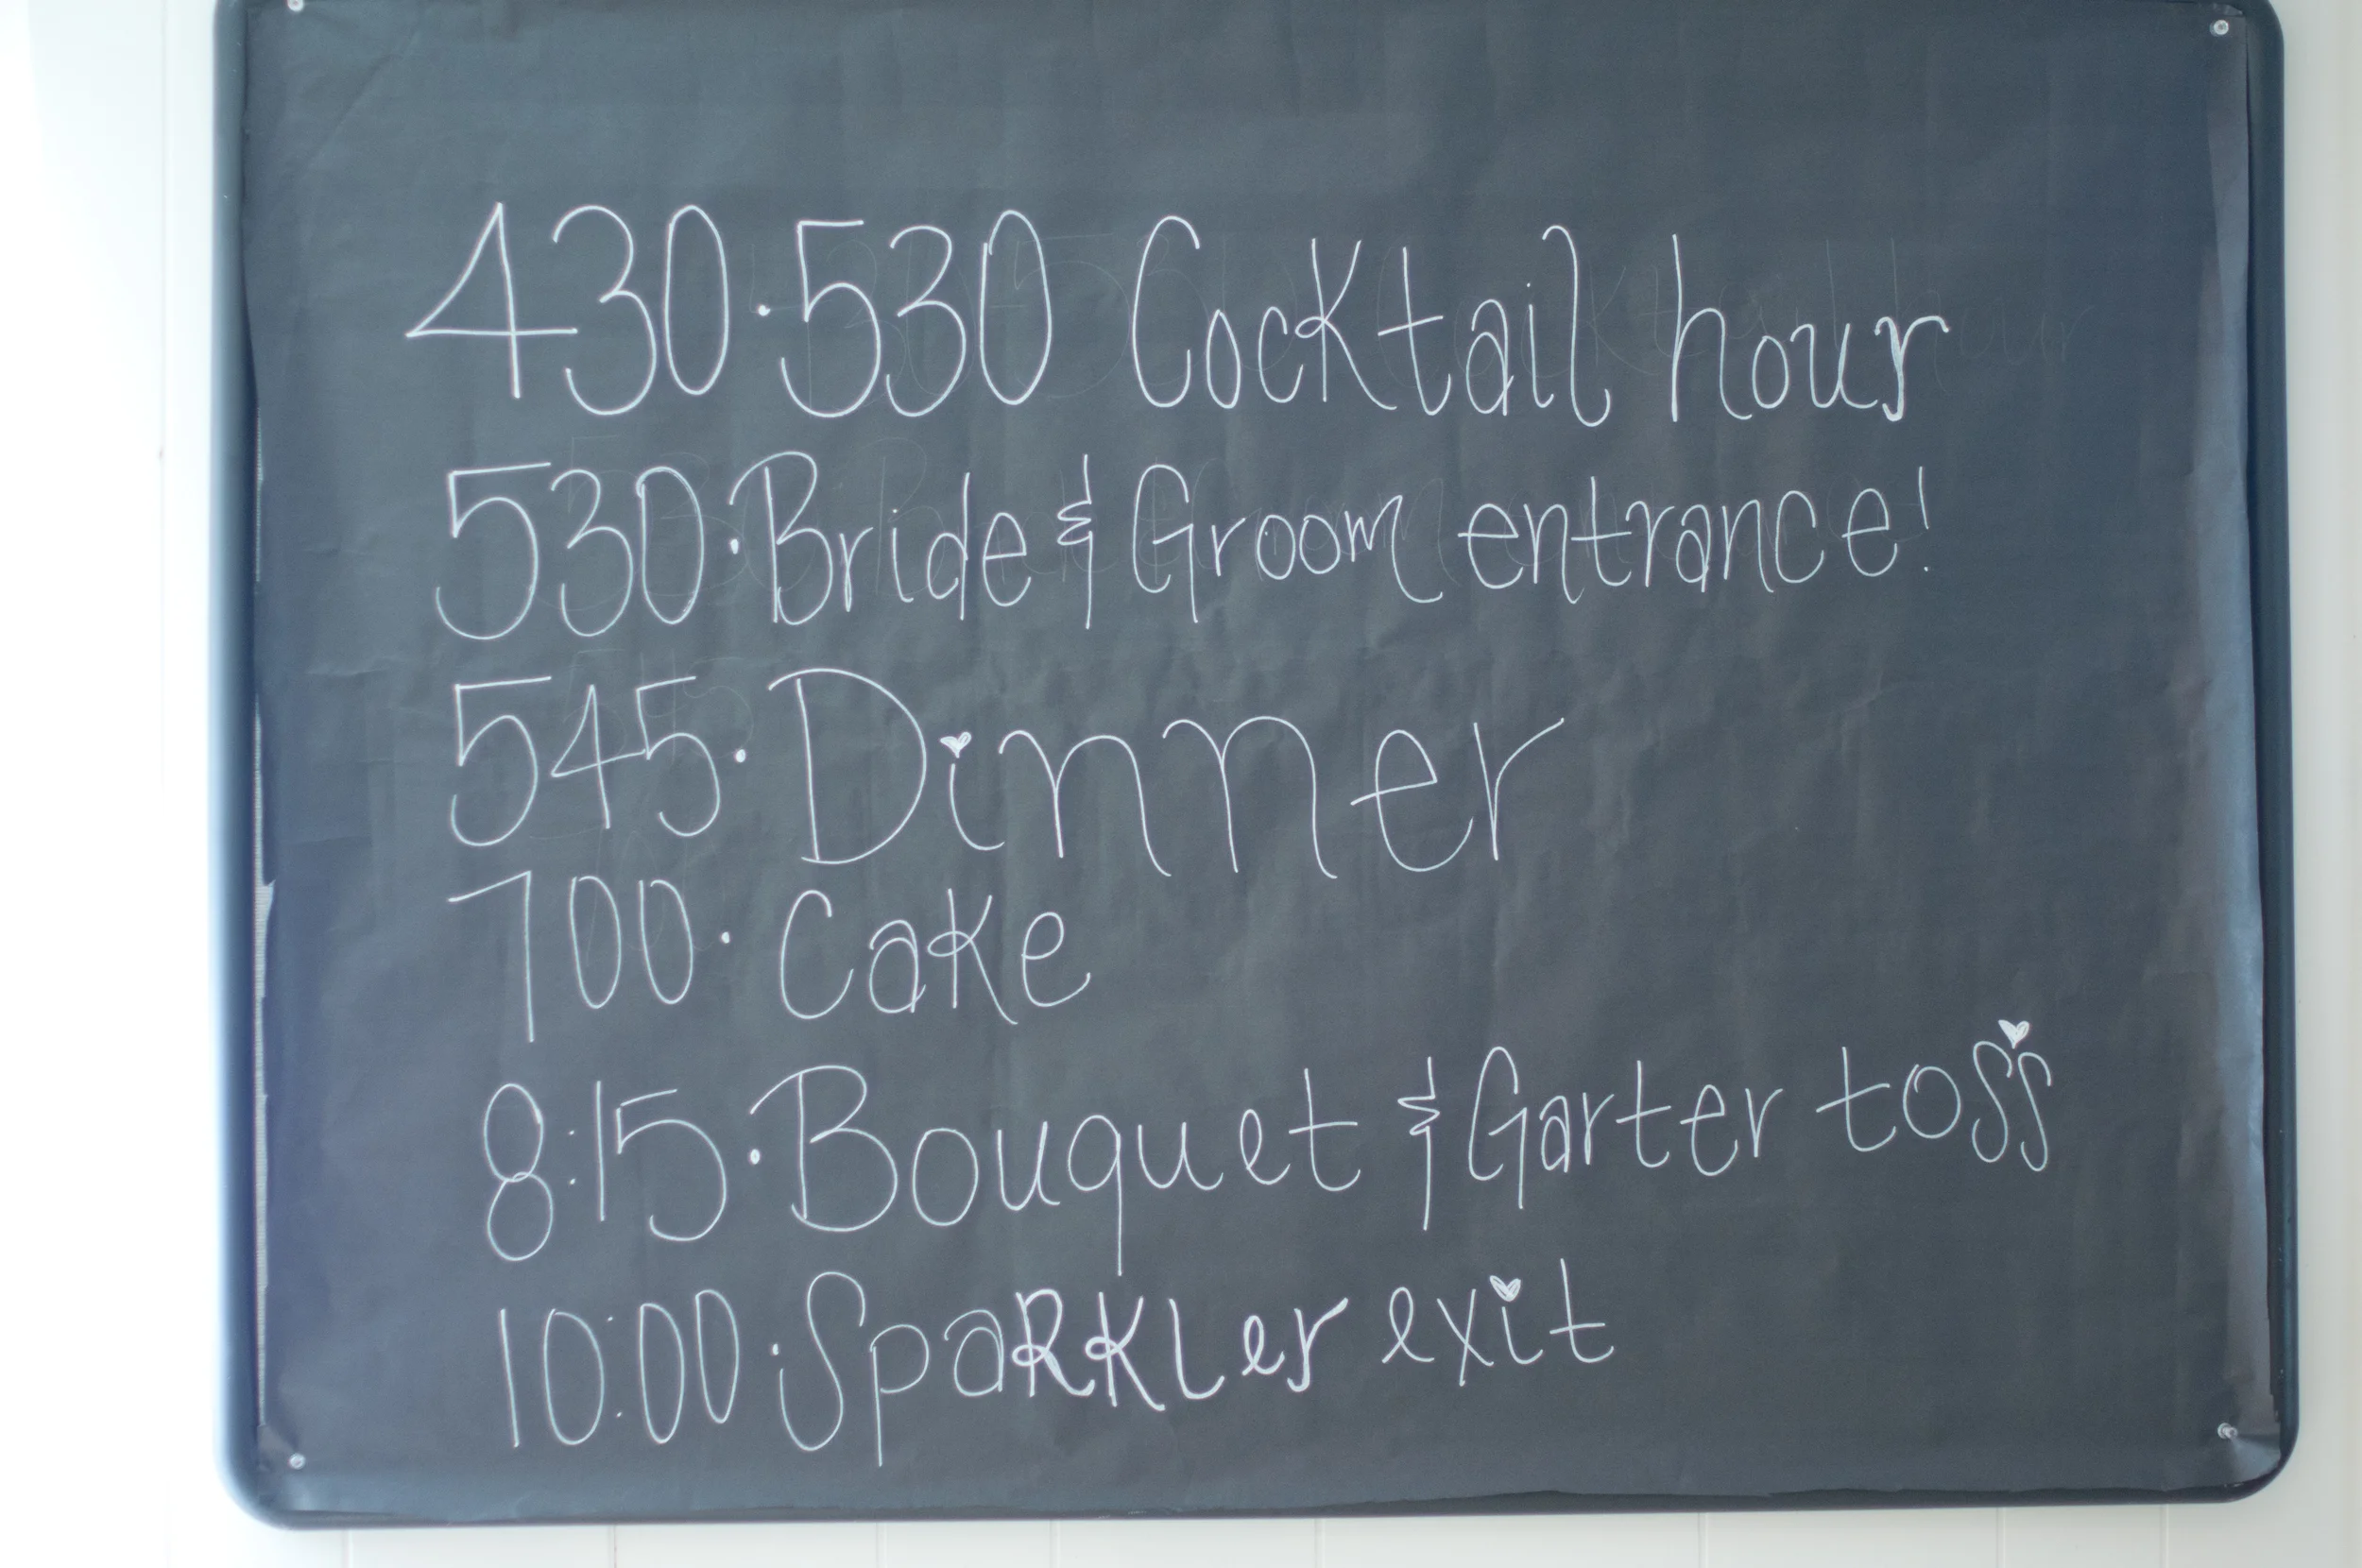 430·530 Cocktail hour
530·Bride & Groom entrance!
545·Dinner
700·Cake
8:15·Bouquet & Garter toss
10:00·Sparkler exit